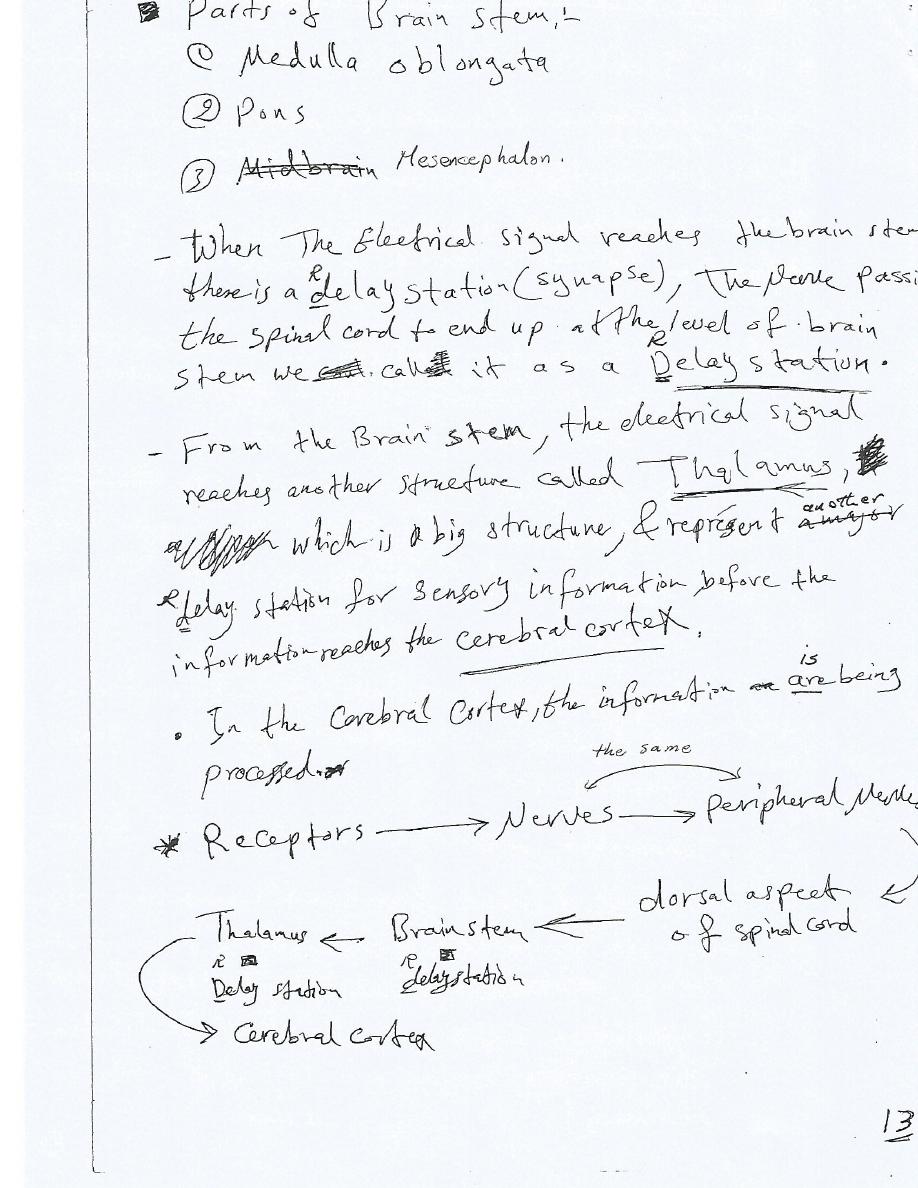 Parts of Brain stem:-
① Medulla oblongata
② Pons
③ Midbrain Mesencephalon.
- When The Electrical signal reaches the brain stem
R
there is a delay station (synapse), The Nerve passi
the spinal cord to end up at the level of brain
R
stem we call it as a Delay station.
- From the Brain stem, the electrical signal
reaches another structure called Thalamus,
another
which is a big structure, & represent a major
R delay station for sensory information before the
information reaches the cerebral cortex.
is
• In the Cerebral Cortex, the information are being
processed.
the same
* Receptors → Nerves → Peripheral Nerves
dorsal aspect
of spinal cord
Thalamus ← Brain stem ←
R R
Delay station delay station
→ Cerebral cortex
13